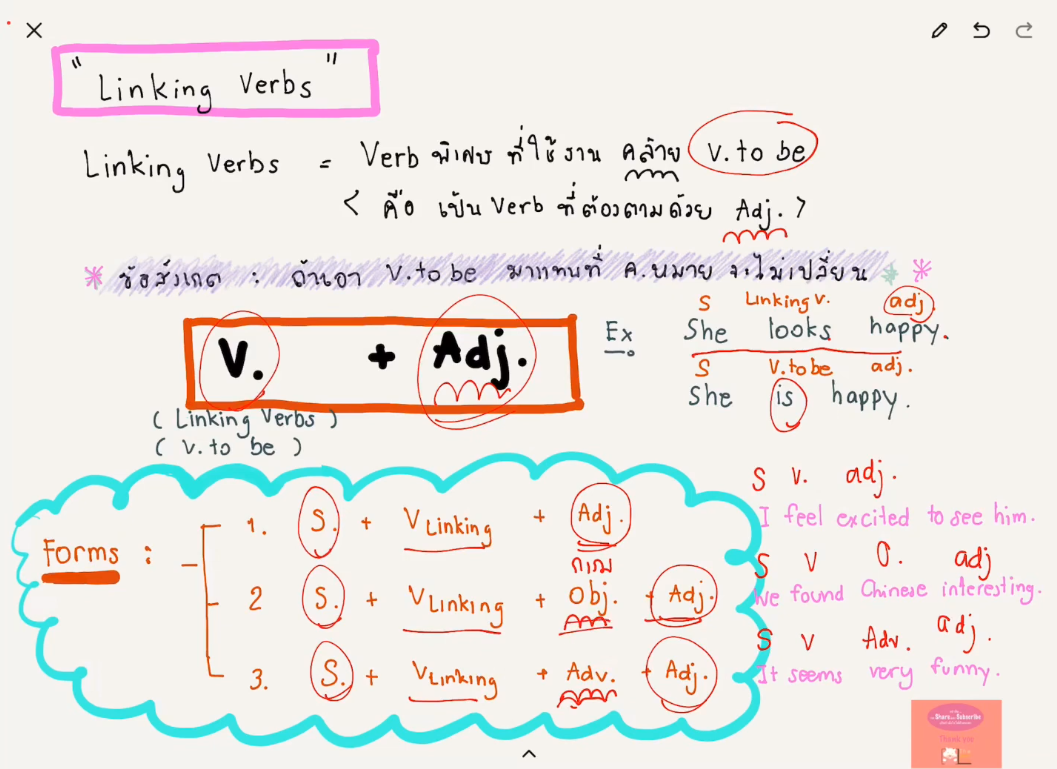 "Linking Verbs"
Linking Verbs = Verb พิเศษ ที่ใช้งาน คล้าย V. to be
< คือ เป็น Verb ที่ต้องตามด้วย Adj. >
* ข้อสังเกต : ถ้าเอา V.to be มาแทนที่ ค.หมาย จะไม่เปลี่ยน *
V. + Adj.
( Linking Verbs )
( V. to be )
Ex
S Linking V. adj.
She looks happy.
S V.to be adj.
She is happy.
Forms :
1. S. + V Linking + Adj.
กรรม
2 S. + V Linking + Obj. + Adj.
3. S. + V Linking + Adv. + Adj.
S V. adj.
I feel excited to see him.
S V O. adj
We found Chinese interesting.
S V Adv. adj.
It seems very funny.
Share Subscribe
Thank you